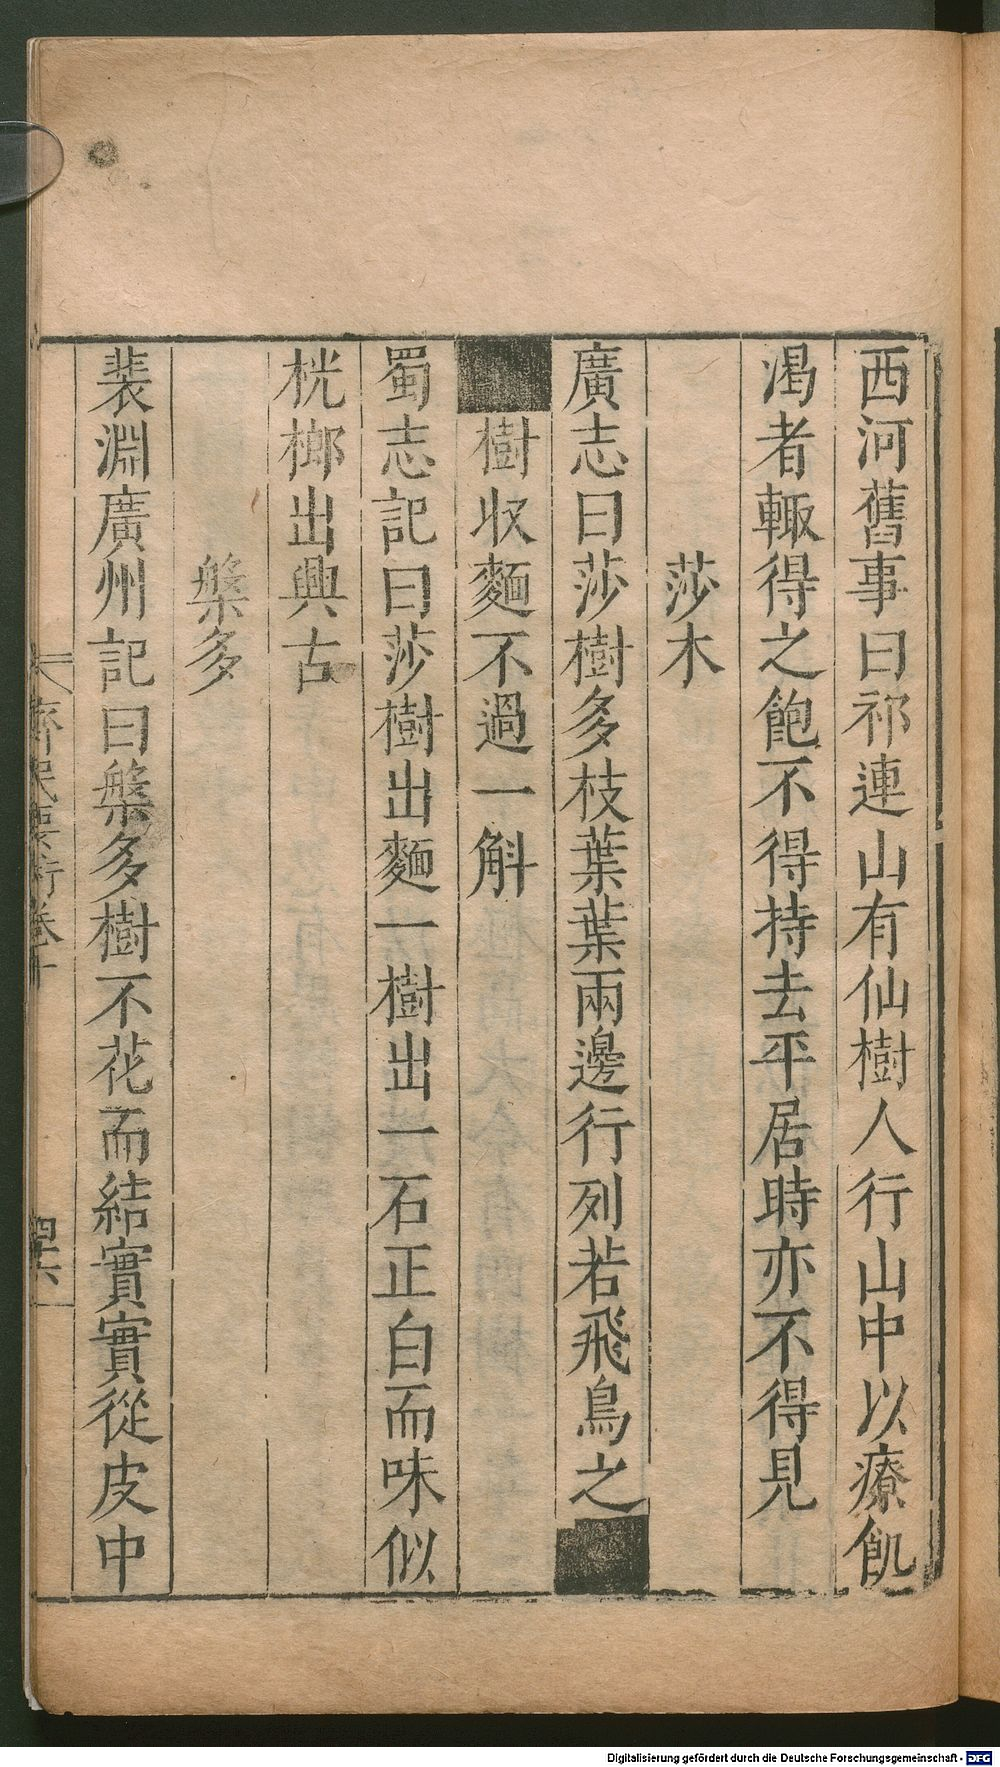 西河舊事曰祁連山有仙樹人行山中以療飢
渴者輙得之飽不得持去平居時亦不得見
莎木
廣志曰莎樹多枝葉葉兩邊行列若飛鳥之
樹收麵不過一斛
蜀志記曰莎樹出麵一樹出一石正白而味似
桄榔出興古
槃多
裴淵廣州記曰槃多樹不花而結實實從皮中
齊民要術卷十
Digitalisierung gefördert durch die Deutsche Forschungsgemeinschaft - DFG